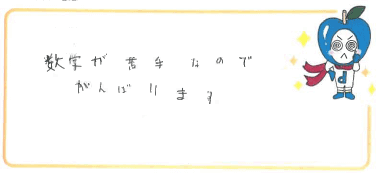 数学が苦手なので
がんばります